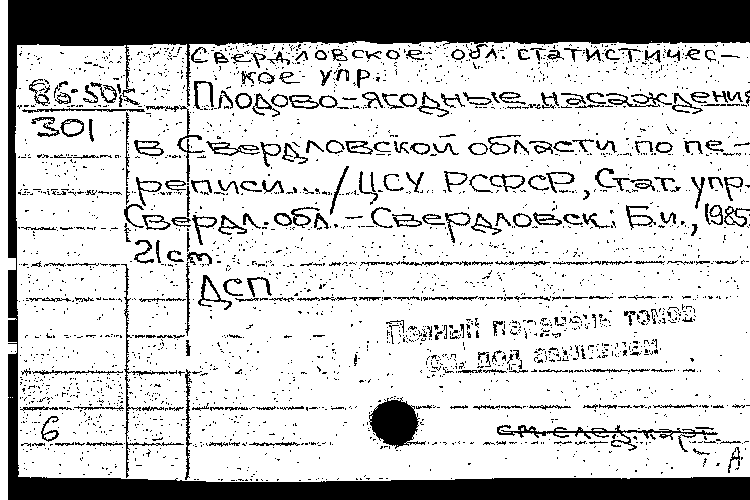 Свердловское обл. статистичес-
кое упр.
86-50к
301
Плодово-ягодные насаждения
в Свердловской области по пе-
реписи... / ЦСУ РСФСР, Стат. упр.
Свердл. обл. - Свердловск: Б.и., 1985.
21 ст.
ДСП
Полный перечень томов
см. под заглавием
6
см. след. карт.
т. А